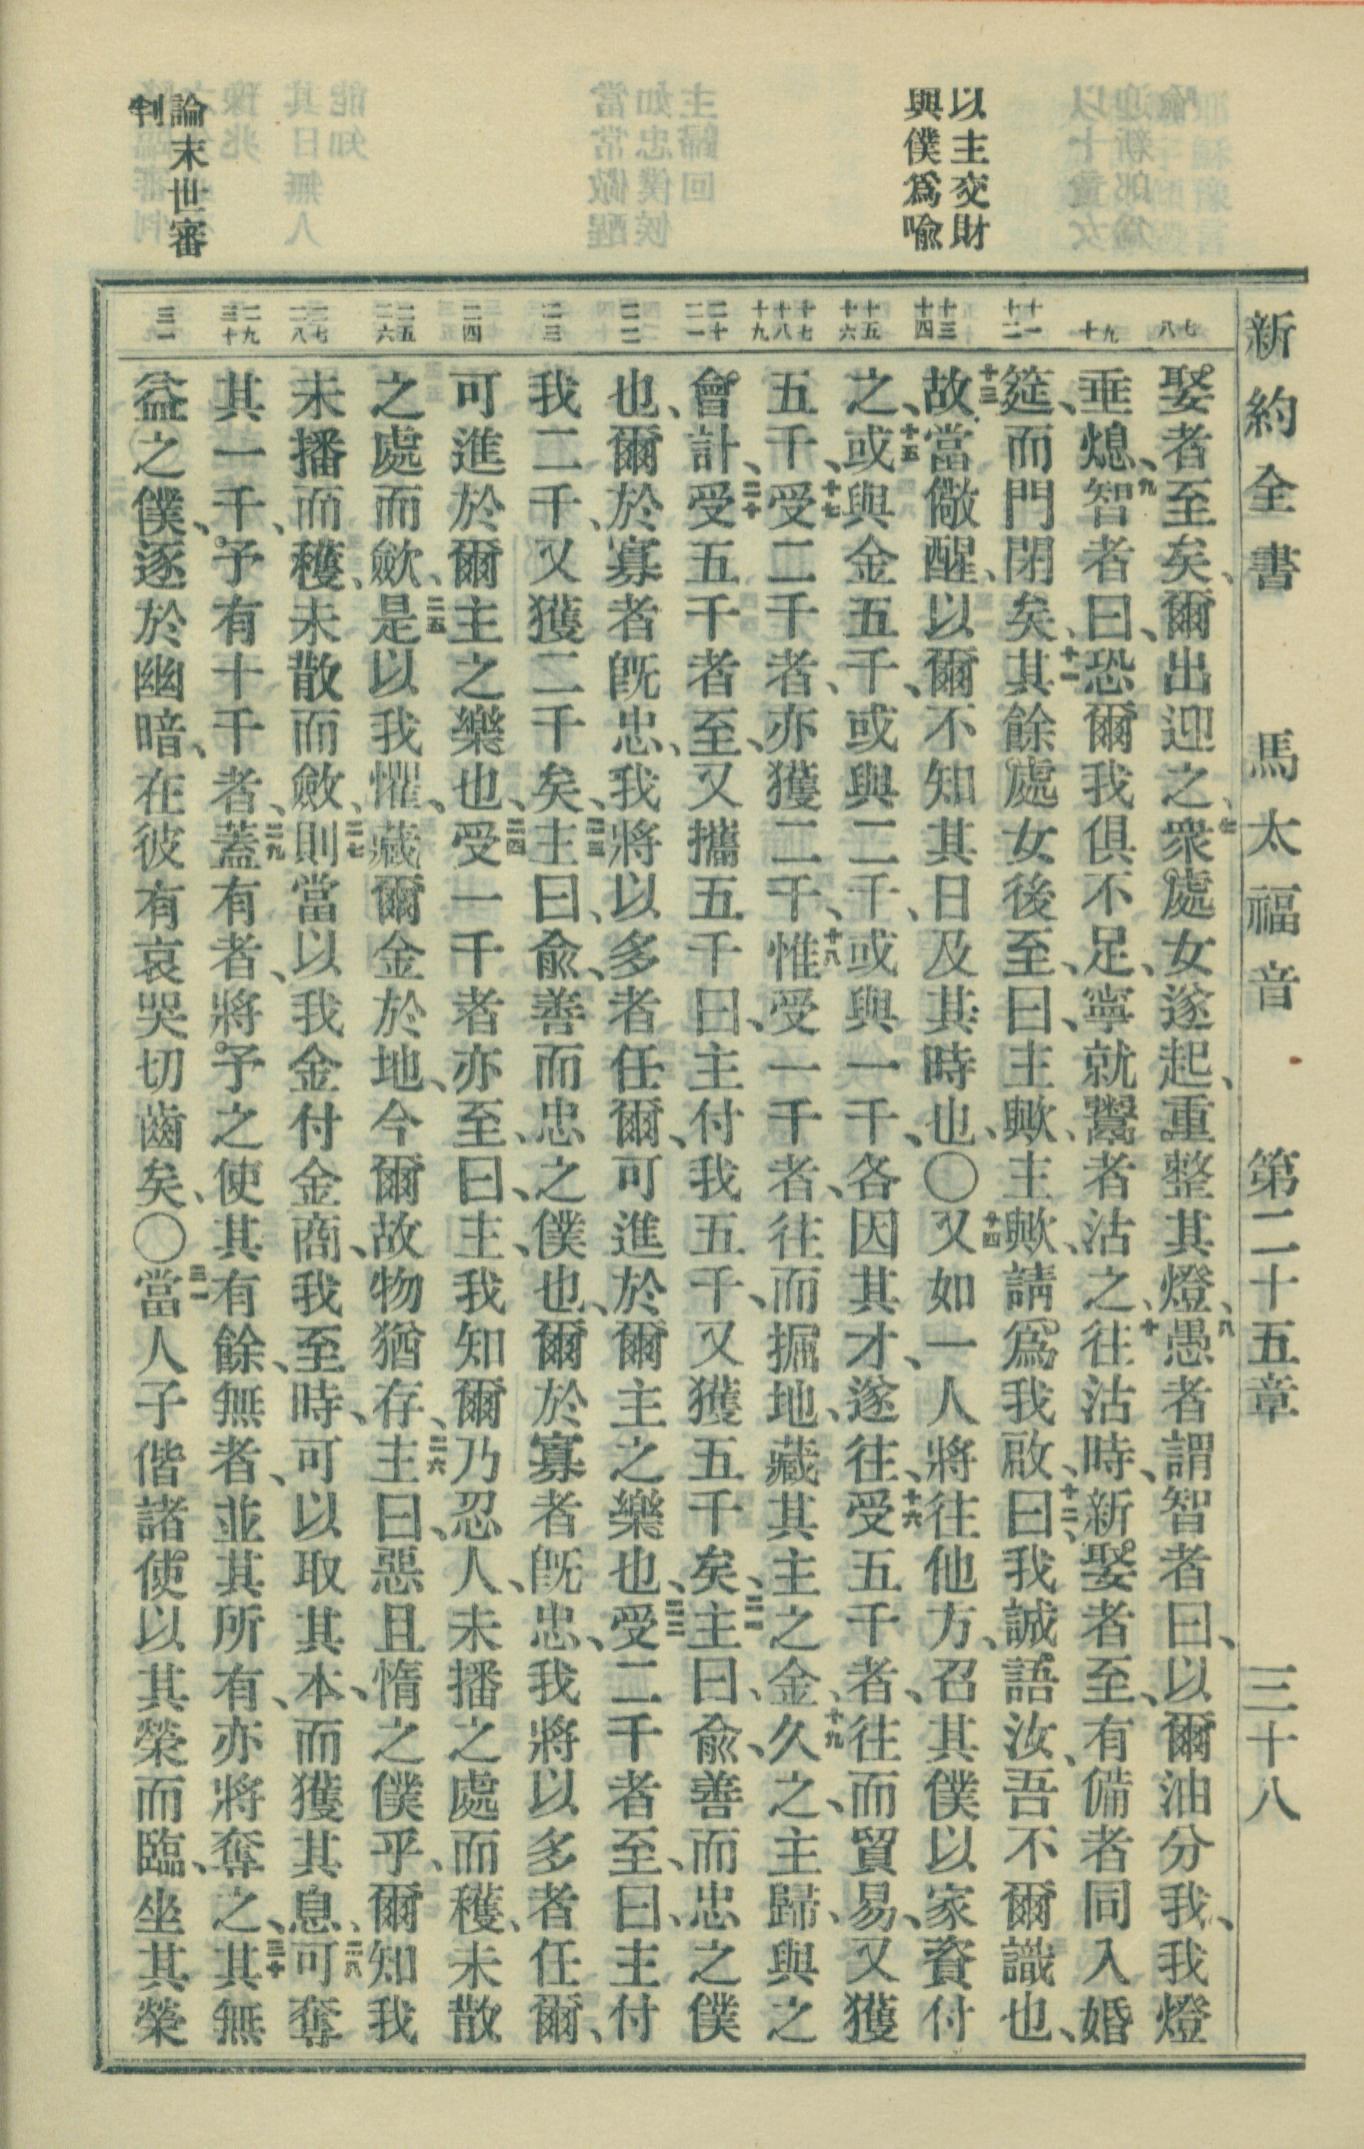 新約全書 馬太福音 第二十五章 三十八
以主交財
與僕爲喩
論末世審
判
七八
九十
十一十二
十三十四
十五十六
十七十八十九
二十二一
二二
二三
二四
二五二六
二七二八
二九三十
三一
娶者至矣、爾出迎之、七衆處女遂起、重整其燈、八愚者謂智者曰、以爾油分我、我燈
垂熄、九智者曰、恐爾我俱不足、寧就鬻者沽之、十往沽時、新娶者至、有備者同入婚
筵、而門閉矣、十一其餘處女後至、曰、主歟、主歟、請爲我啟、十二曰、我誠語汝、吾不爾識也、
十三故當儆醒、以爾不知其日及其時也、〇十四又如一人將往他方、召其僕以家資付
之、十五或與金五千、或與二千、或與一千、各因其才、遂往、十六受五千者、往而貿易、又獲
五千、十七受二千者、亦獲二千、十八惟受一千者、往而掘地、藏其主之金、十九久之、主歸、與之
會計、二十受五千者至、又攜五千曰、主付我五千、又獲五千矣、二一主曰、俞、善而忠之僕
也、爾於寡者旣忠、我將以多者任爾、可進於爾主之樂也、二二受二千者至、曰、主付
我二千、又獲二千矣、二三主曰、俞、善而忠之僕也、爾於寡者旣忠、我將以多者任爾、
可進於爾主之樂也、二四受一千者亦至、曰、主、我知爾乃忍人、未播之處而穫、未散
之處而歛、二五是以我懼、藏爾金於地、今爾故物猶存、二六主曰、惡且惰之僕乎、爾知我
未播而穫、未散而斂、二七則當以我金付金商、我至時、可以取其本、而獲其息、二八可奪
其一千、予有十千者、二九蓋有者、將予之使其有餘、無者、並其所有、亦將奪之、三十其無
益之僕、逐於幽暗、在彼有哀哭切齒矣、〇三一當人子偕諸使以其榮而臨、坐其榮